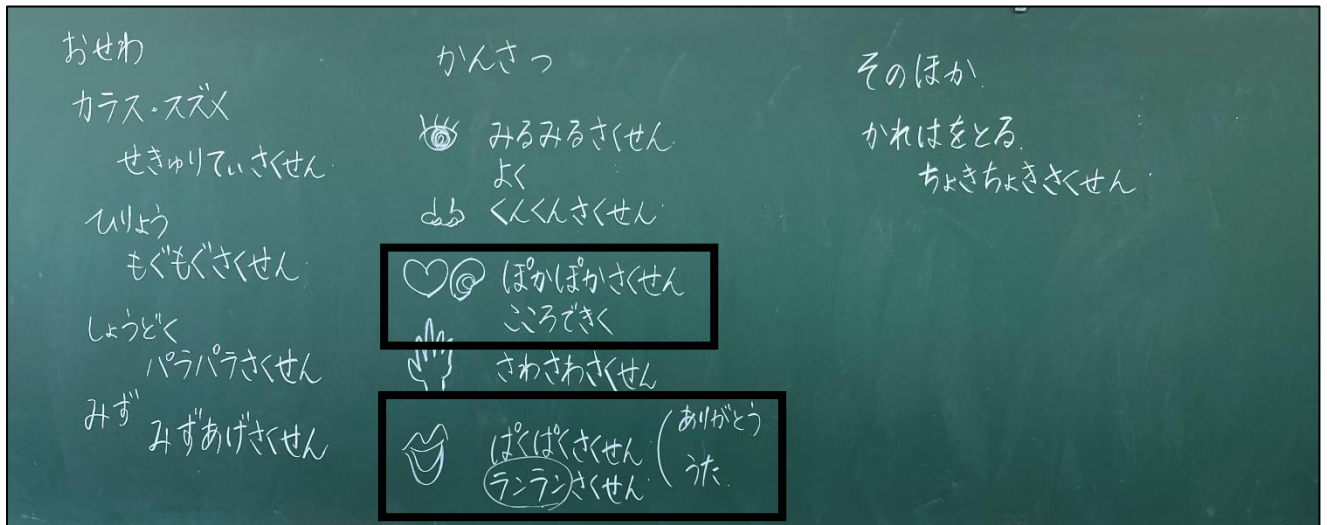 おせわ
カラス・スズメ
せきゅりてぃさくせん
ひりょう
もぐもぐさくせん
しょうどく
パラパラさくせん
みず
みずあげさくせん
かんさつ
みるみるさくせん
よく
くんくんさくせん
ぽかぽかさくせん
こころできく
さわさわさくせん
ぱくぱくさくせん
ランランさくせん
ありがとう
うた
そのほか
かれはをとる
ちょきちょきさくせん